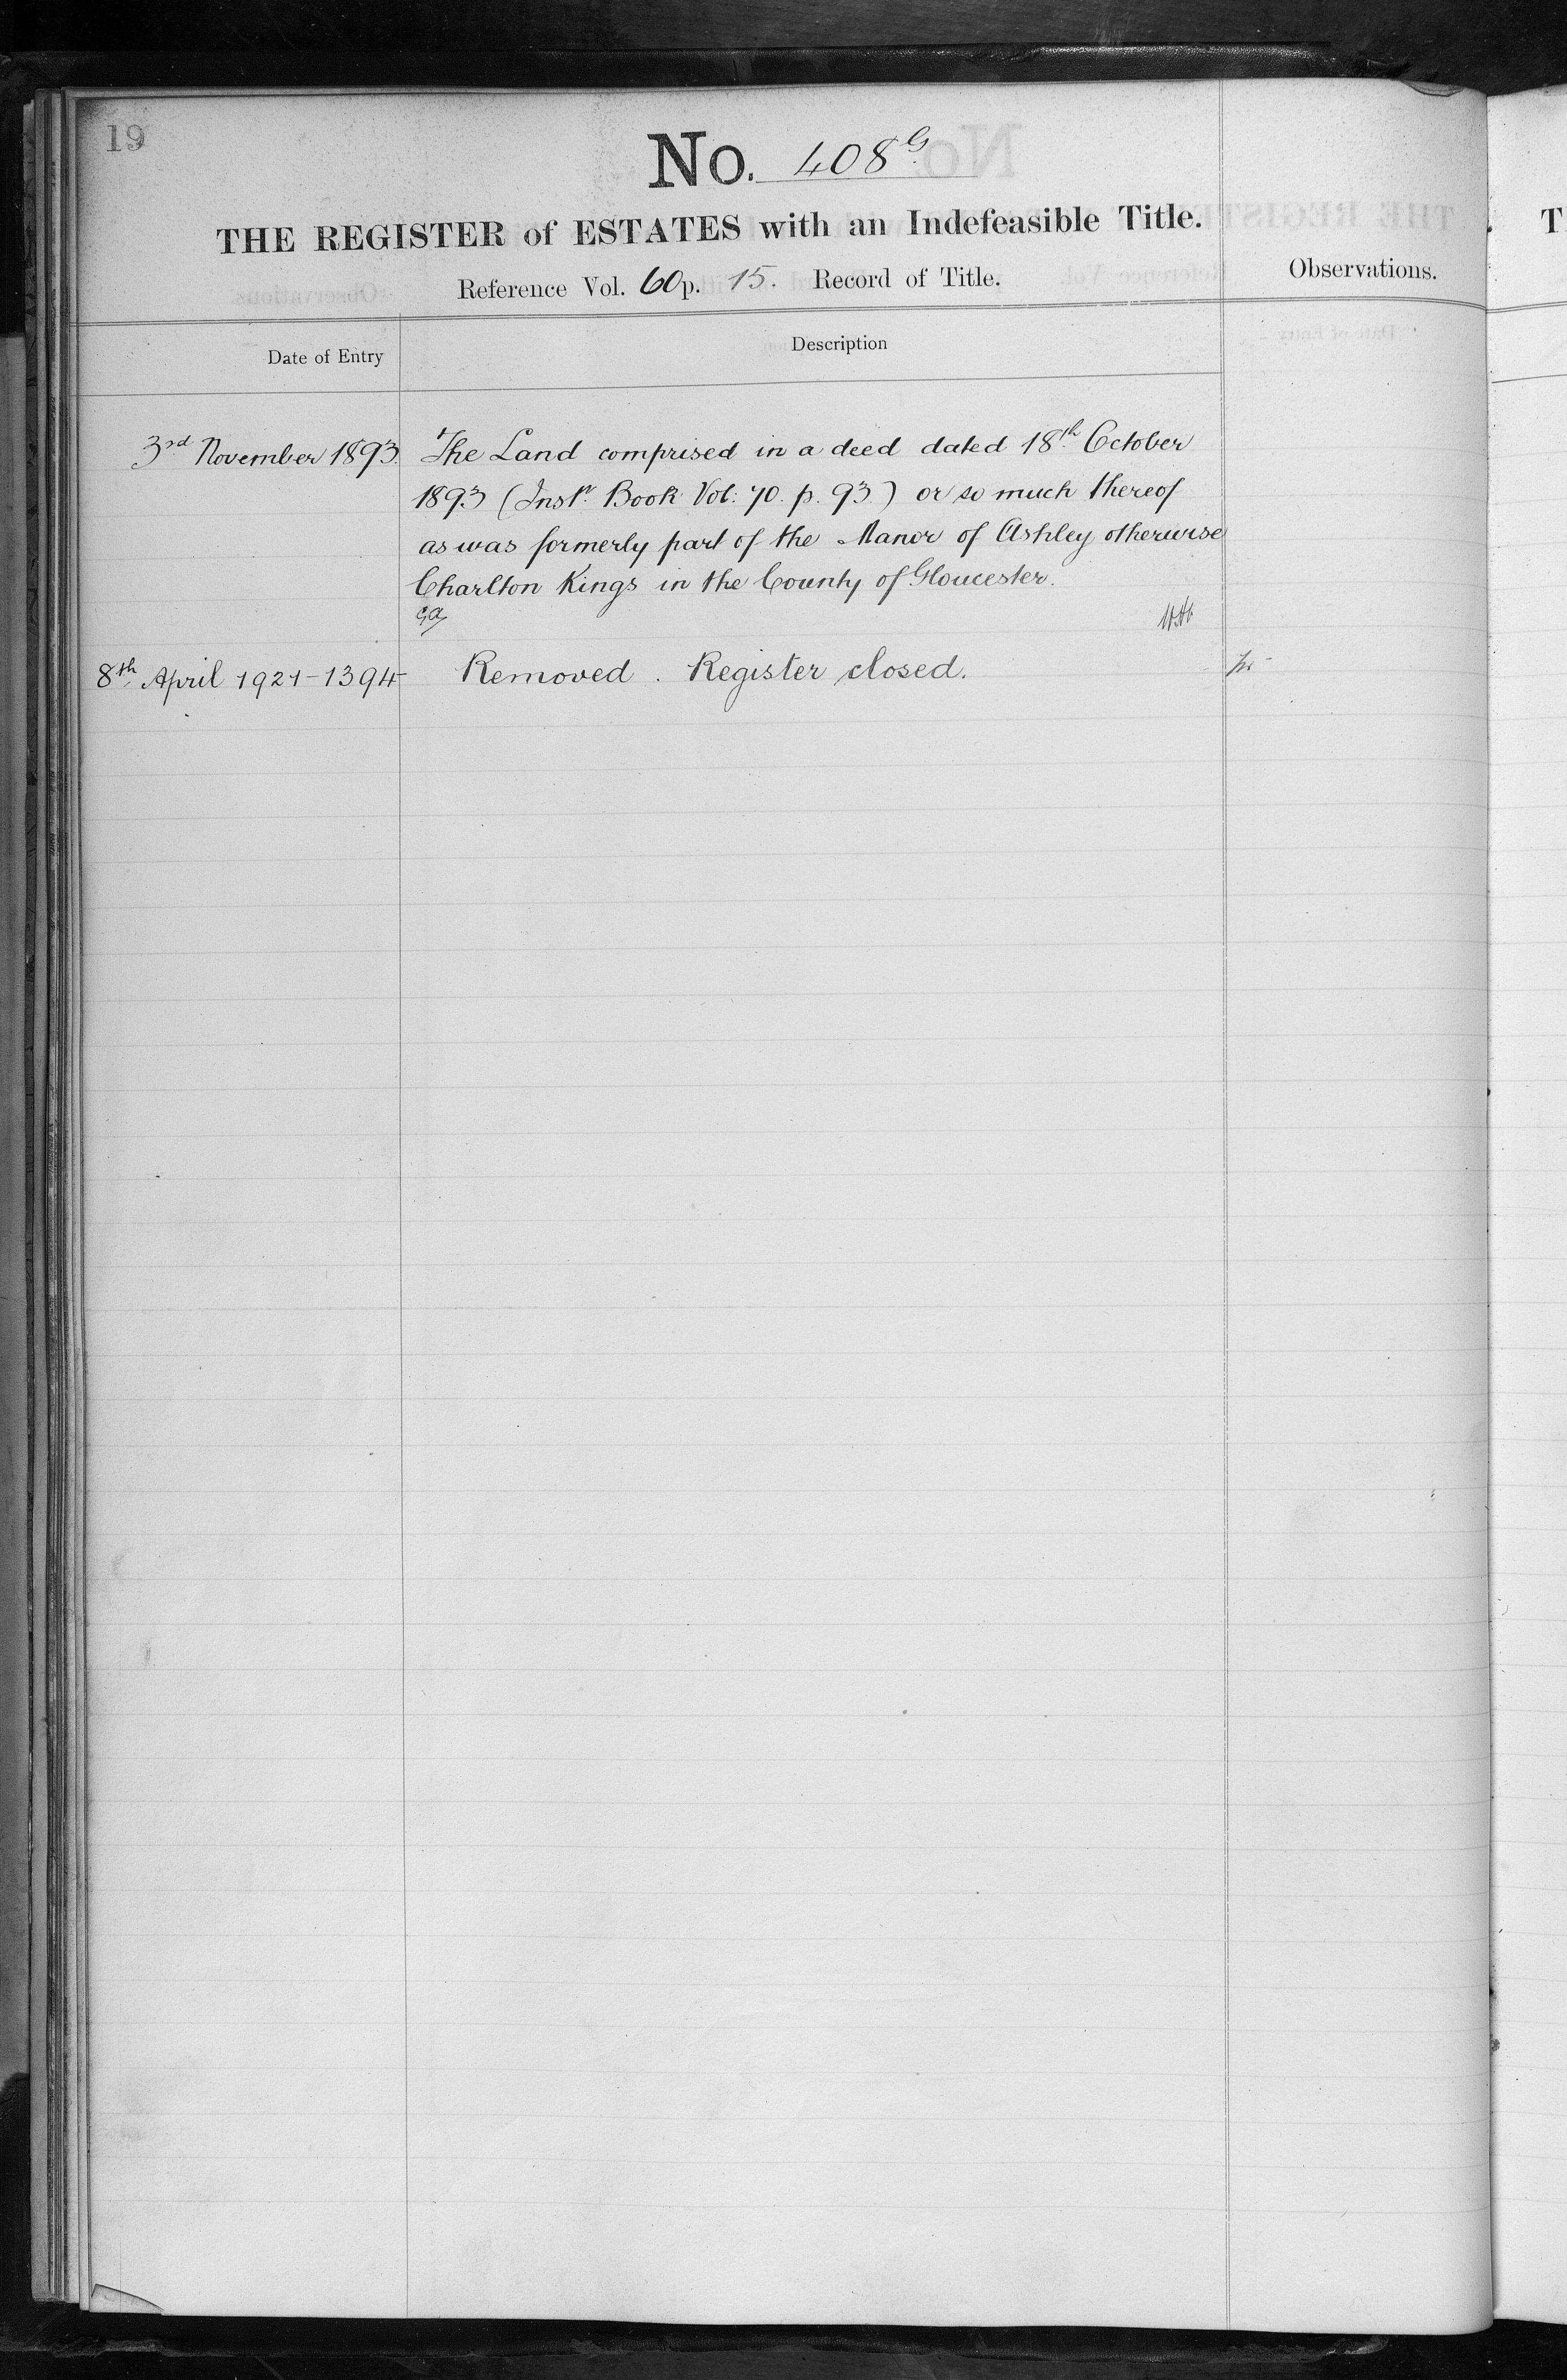 19
No. 408 G.
THE REGISTER of ESTATES with an Indefeasible Title.
Reference Vol. 60 p. 15. Record of Title.
Observations.
Date of Entry
Description
3rd November 1893.
The Land comprised in a deed dated 18th October
1893 (Instr. Book Vol: 70. p. 93.) or so much thereof
as was formerly part of the Manor of Ashley otherwise
Charlton Kings in the County of Gloucester.
8th April 1921-1394
Removed. Register closed.
T